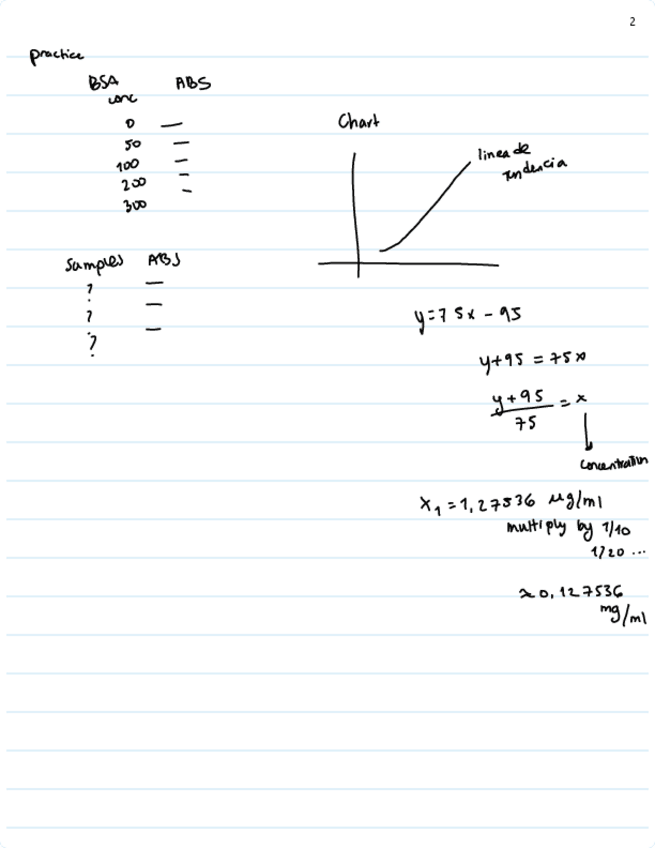 2
practice
BSA ABS
conc
0 —
50 —
100 —
200 —
300 -
Samples ABS
? —
? —
? —
Chart
linea de
tendencia
y=75x - 95
y+95 = 75x
y+95 = x
75
concentration
x₁ = 1,27536 µg/ml
multiply by 1/10
1/20 ...
≈ 0,127536
mg/ml